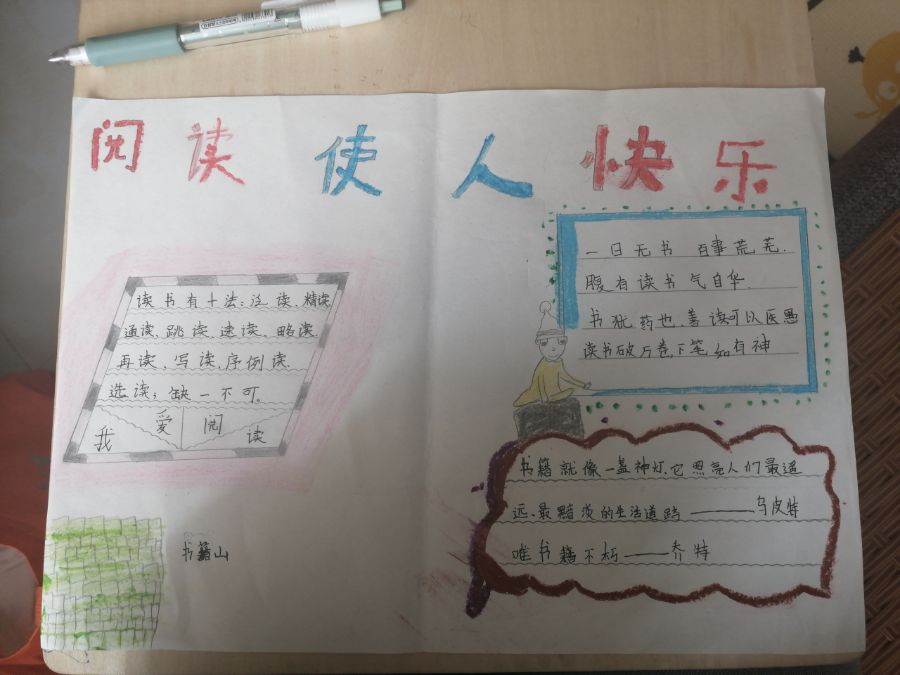 阅读使人快乐
读书有十法：泛读、精读
通读、跳读、速读、略读、
再读、写读、序例读、
选读；缺一不可。
我爱阅读
书籍山
一日无书 百事荒芜.
腹有读书 气自华.
书犹药也，善读可以医愚
读书破万卷下笔如有神
书籍就像一盏神灯，它照亮人们最遥
远、最黯淡的生活道路——乌皮特
唯书籍不朽——乔特